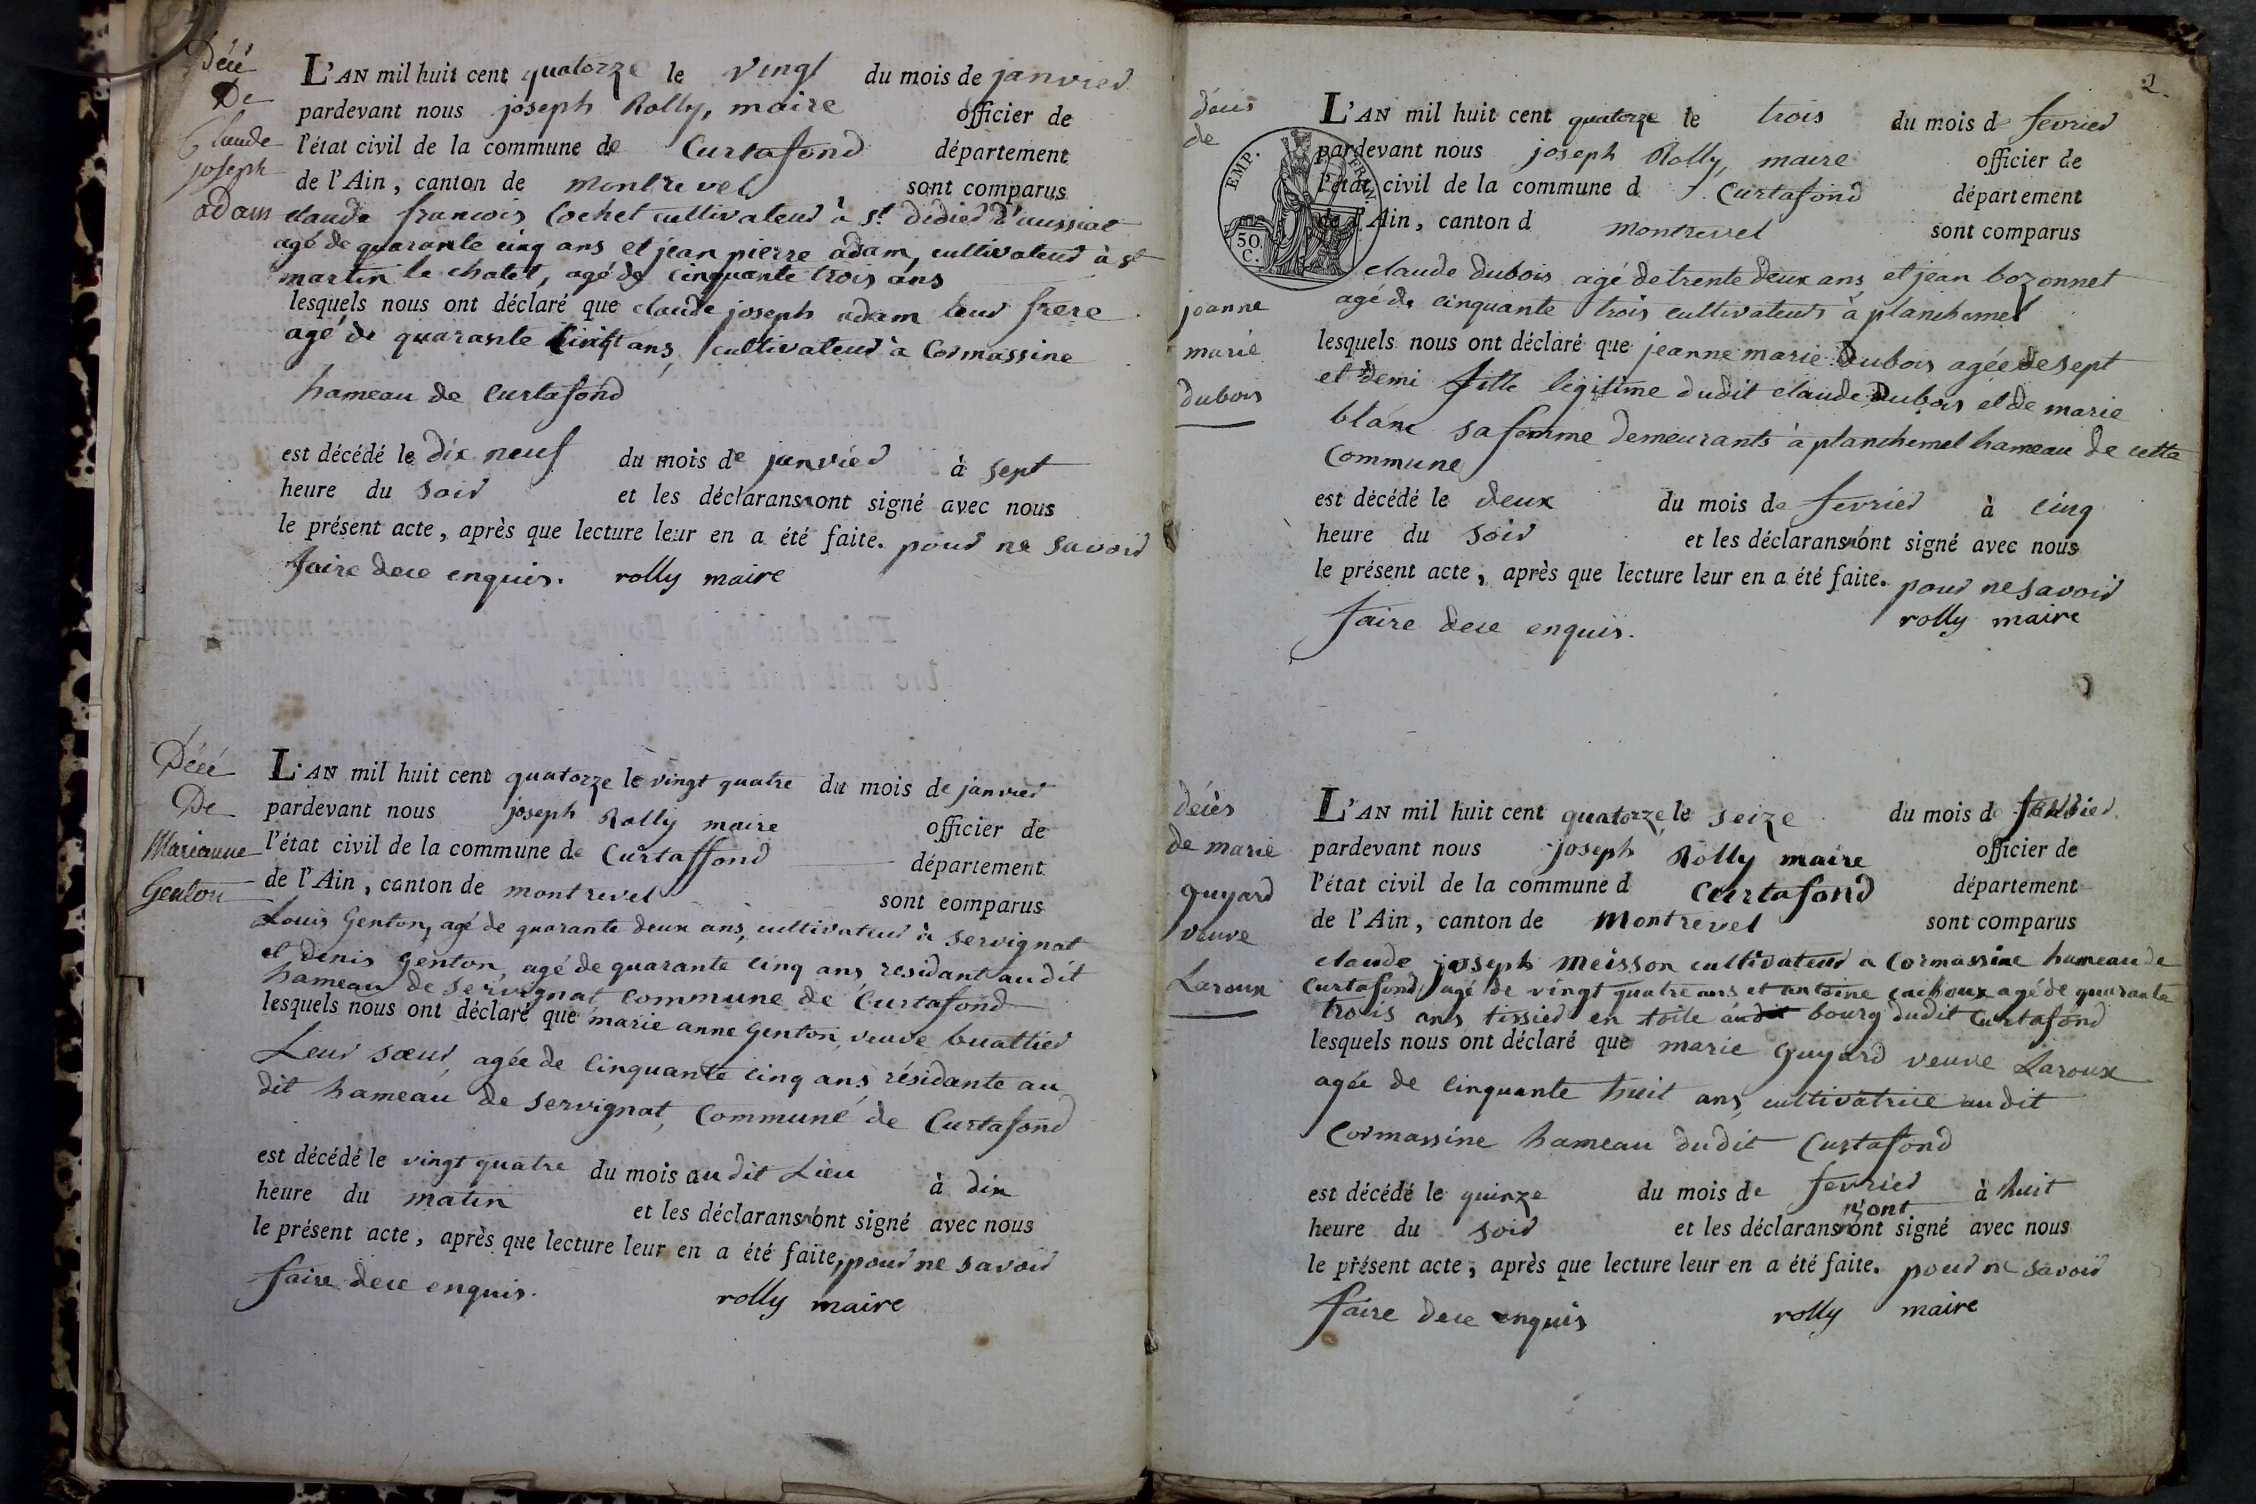 Décé
De
Claude
joseph
adam
L'AN mil huit cent quatorze le vingt du mois de janvier
pardevant nous joseph Rolly, maire officier de
l'état civil de la commune de Curtafond département
de l'Ain, canton de montrevel sont comparus
claude francois Cochet cultivateur à st didier d'aussiat
agé de quarante cinq ans et jean pierre adam, cultivateur à st
martin le chatel, agé de cinquante trois ans
lesquels nous ont déclaré que claude joseph adam leur frere
agé de quarante ans, cultivateur à Cormassine
hameau de Curtafond
est décédé le dix neuf du mois de janvier à sept
heure du soir et les déclarans n'ont signé avec nous
le présent acte, après que lecture leur en a été faite. pour ne savoir
faire dece enquis. rolly maire
Décé
De
Marianne
Genton
L'AN mil huit cent quatorze le vingt quatre du mois de janvier
pardevant nous joseph Rolly maire officier de
l'état civil de la commune de Curtaffond département
de l'Ain, canton de montrevel sont comparus
Louis Genton, agé de quarante deux ans, cultivateur à servignat
et denis genton, agé de quarante cinq ans, residant audit
hameau de servignat commune de Curtafond
lesquels nous ont déclaré que marie anne Genton, veuve buattier
Leur sœur, agée de Cinquante cinq ans, résidante au
dit hameau de servignat, Commune de Curtafond
est décédé le vingt quatre du mois audit Lieu à dix
heure du matin et les déclarans n'ont signé avec nous
le présent acte, après que lecture leur en a été faite, pour ne savoir
faire dece enquis.
rolly maire
2.
décès
de
joanne
marie
dubois
EMP. FRAN.
50.
C.
L'AN mil huit cent quatorze le trois du mois d fevrier
pardevant nous joseph Rolly, maire officier de
l'état civil de la commune d Curtafond département
de l'Ain, canton d montrevel sont comparus
claude dubois agé de trente deux ans et jean bozonnet
agé de cinquante trois cultivateurs à planchemel
lesquels nous ont déclaré que jeanne marie Dubois agée de sept
et demi fille légitime dudit claude Dubois et de marie
blanc sa femme demeurants à planchemel hameau de cette
Commune
est décédé le deux du mois de fevrier à cinq
heure du soir et les déclarans n'ont signé avec nous
le présent acte, après que lecture leur en a été faite. pour ne savoir
faire dece enquis.
rolly maire
decès
de marie
guyard
veuve
Laroux
L'AN mil huit cent quatorze le seize du mois de
pardevant nous joseph Rolly maire officier de
l'état civil de la commune d Curtafond département
de l'Ain, canton de Montrevel sont comparus
claude joseph meisson cultivateur a Cormassine hameau de
Curtafond, agé de vingt quatre ans et antoine agé de quarante
trois ans tissier en toile bourg dudit Curtafond
lesquels nous ont déclaré que marie guyard veuve Laroux
agée de cinquante huit ans, cultivatrice audit
Cormassine hameau dudit Curtafond
est décédé le quinze du mois de fevrier à huit
n'ont
heure du soir et les déclarans n'ont signé avec nous
le présent acte, après que lecture leur en a été faite. pour ne savoir
faire dece enquis
rolly maire